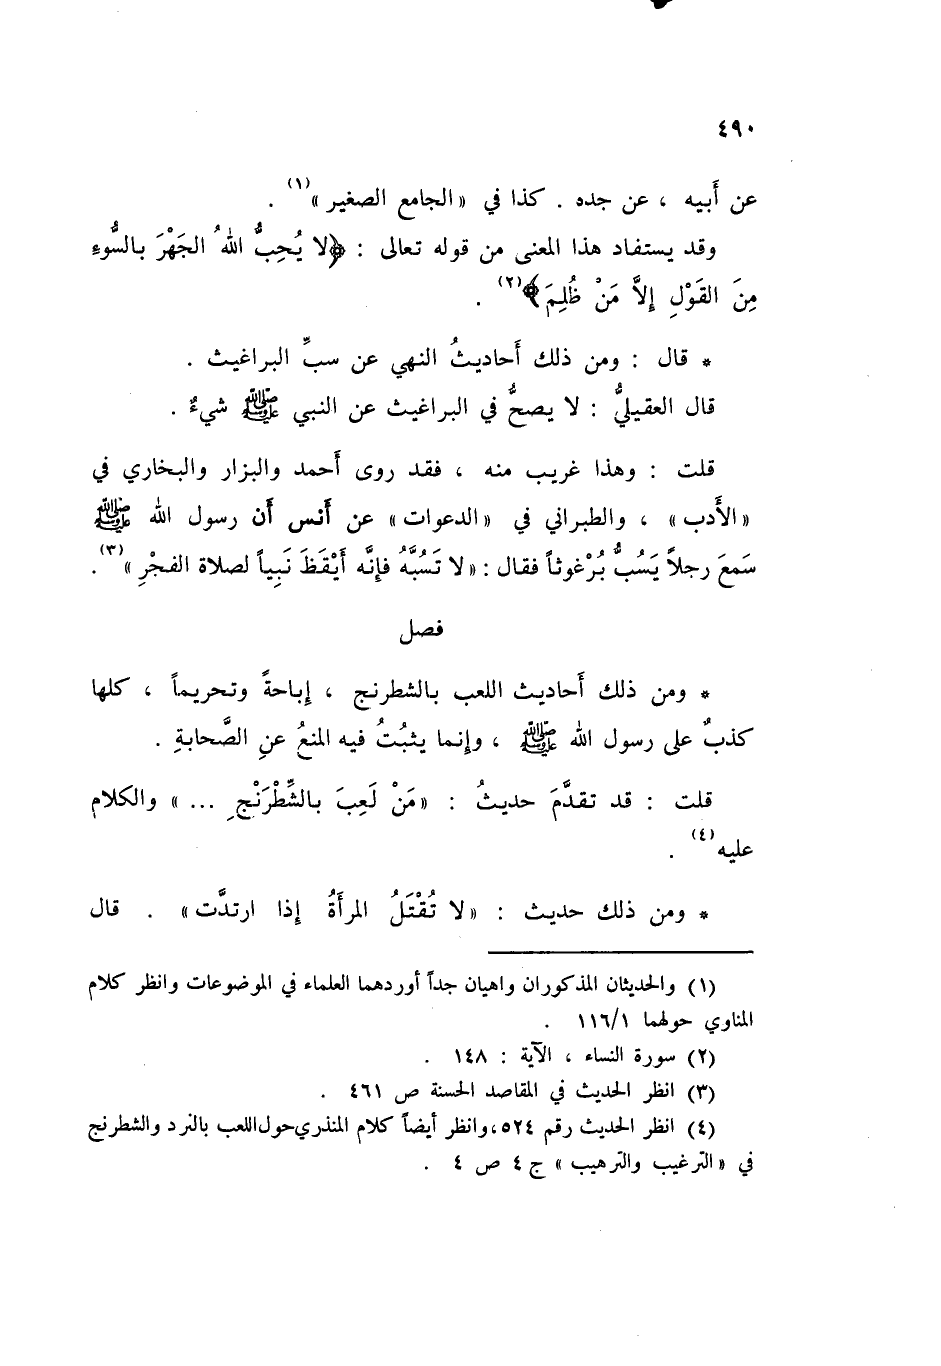 ٤٩٠
عن أَبيه ، عن جده . كذا في « الجامع الصغير »(١) .
وقد يستفاد هذا المعنى من قوله تعالى : ﴿لا يُحِبُّ اللهُ الجَهْرَ بالسُّوءِ
مِنَ القَوْلِ إِلاَّ مَنْ ظُلِمَ﴾(٢) .
* قال : ومن ذلك أَحاديثُ النهي عن سبِّ البراغيث .
قال العقيليُّ : لا يصحُّ في البراغيث عن النبي ﷺ شيءٌ .
قلت : وهذا غريب منه ، فقد روى أَحمد والبزار والبخاري في
« الأَدب » ، والطبراني في « الدعوات » عن أَنس أَن رسول الله ﷺ
سَمعَ رجلاً يَسُبُّ بُرْغوثاً فقال : « لا تَسُبَّهُ فإنَّه أَيْقَظَ نَبِياً لصلاة الفجْرِ »(٣) .
فصل
* ومن ذلك أَحاديث اللعب بالشطرنج ، إباحةً وتحريماً ، كلها
كذبٌ على رسول الله ﷺ ، وإنما يثبُتُ فيه المنعُ عنِ الصَّحابةِ .
قلت : قد تقدَّمَ حديثُ : « مَنْ لَعِبَ بالشِّطْرَنْجِ ... » والكلام
عليه(٤) .
* ومن ذلك حديث : « لا تُقْتَلُ المرأَةُ إذا ارتدَّت » . قال
(١) والحديثان المذكوران واهيان جداً أوردهما العلماء في الموضوعات وانظر كلام
المناوي حولهما ١١٦/١ .
(٢) سورة النساء ، الآية : ١٤٨ .
(٣) انظر الحديث في المقاصد الحسنة ص ٤٦١ .
(٤) انظر الحديث رقم ٥٢٤ ، وانظر أيضاً كلام المنذري حول اللعب بالنرد والشطرنج
في « الترغيب والترهيب » ج ٤ ص ٤ .